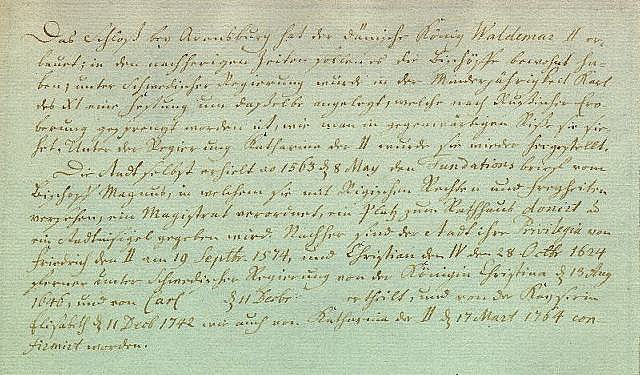 Das Schloß bey Arensburg hat der dänische König Waldemar II er-
bauet; in den nachherigen Zeiten sollen es die Bischöffe bewohnt ha-
ben; unter Schwedischer Regierung wurde in der Minderjährigkeit Karl
des XI eine Festung um dasselbe angelegt, welche nach Rußischer Ero-
berung gesprengt worden ist, wie man in gegenwärtigen Riße sie sie-
het. Unter der Regierung Katharina der II wurde sie wieder hergestellt.
Die Stadt selbst erhielt ao 1563 d 8 May den Fundations brief vom
Bischof Magnus, in welchem sie mit Rigischen Rechten und Freyheiten
versehen, ein Magistrat verordnet, ein Platz zum Rathhaus donirt u
ein Stadtsiegel gegeben wird. Nachher sind der Stadt ihre Privilegia von
Friedrich den II am 19 Septbr. 1574, und Christian den IV den 28 Octbr 1624
ferner unter Schwedischer Regierung von der Königin Christina d 13 Aug
1646, und von Carl d 11 Decbr ertheilt, und von der Kayserin
Elisabeth d 11 Decb 1742 wie auch von Katharina der II d 17 Mart 1764 con-
firmirt worden.